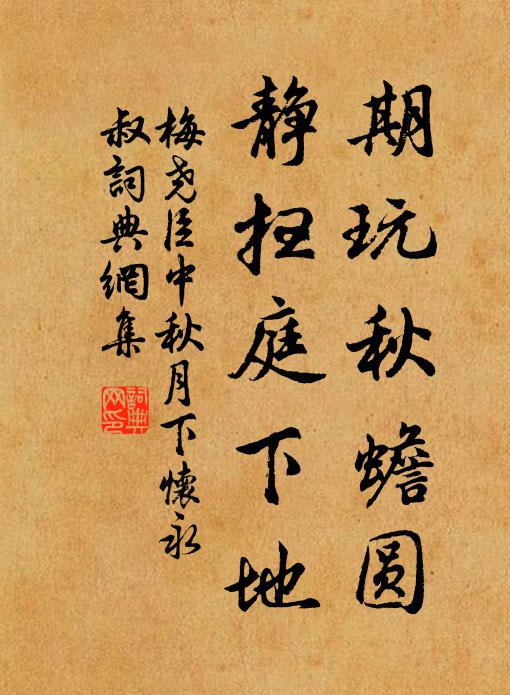 期玩秋蟾圆
静扫庭下地
梅尧臣中秋月下懷永
叔詞典網集
詞典
网印